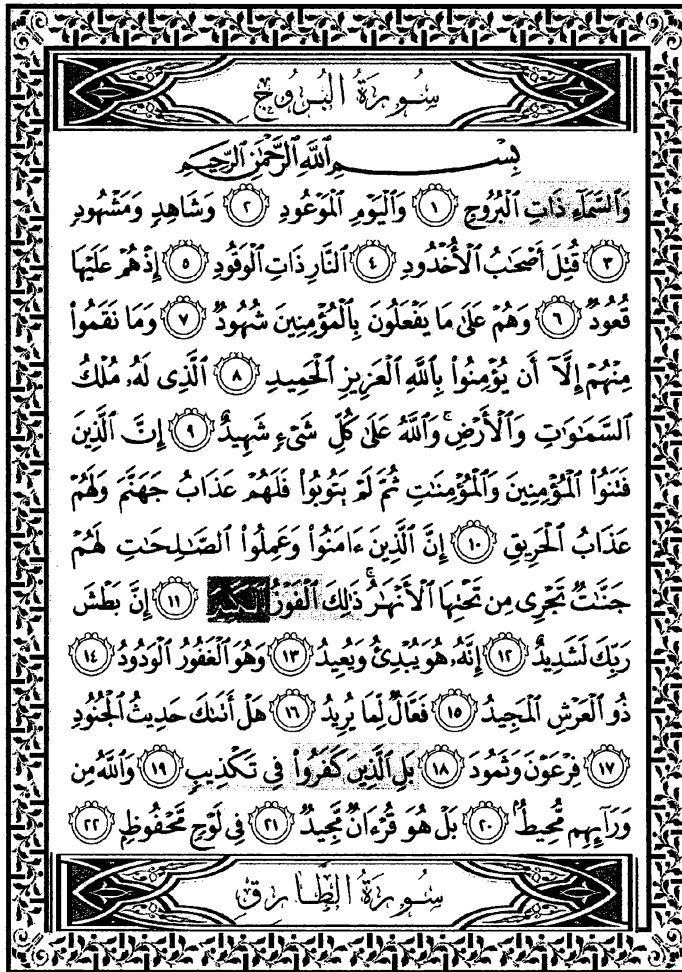 سُورَةُ البُرُوجِ
بِسْمِ اللَّهِ الرَّحْمَٰنِ الرَّحِيمِ
وَالسَّمَاءِ ذَاتِ الْبُرُوجِ ١ وَالْيَوْمِ الْمَوْعُودِ ٢ وَشَاهِدٍ وَمَشْهُودٍ
٣ قُتِلَ أَصْحَابُ الْأُخْدُودِ ٤ النَّارِ ذَاتِ الْوَقُودِ ٥ إِذْ هُمْ عَلَيْهَا
قُعُودٌ ٦ وَهُمْ عَلَىٰ مَا يَفْعَلُونَ بِالْمُؤْمِنِينَ شُهُودٌ ٧ وَمَا نَقَمُوا
مِنْهُمْ إِلَّا أَن يُؤْمِنُوا بِاللَّهِ الْعَزِيزِ الْحَمِيدِ ٨ الَّذِي لَهُ مُلْكُ
السَّمَاوَاتِ وَالْأَرْضِ ۚ وَاللَّهُ عَلَىٰ كُلِّ شَيْءٍ شَهِيدٌ ٩ إِنَّ الَّذِينَ
فَتَنُوا الْمُؤْمِنِينَ وَالْمُؤْمِنَاتِ ثُمَّ لَمْ يَتُوبُوا فَلَهُمْ عَذَابُ جَهَنَّمَ وَلَهُمْ
عَذَابُ الْحَرِيقِ ١٠ إِنَّ الَّذِينَ ءَامَنُوا وَعَمِلُوا الصَّالِحَاتِ لَهُمْ
جَنَّاتٌ تَجْرِي مِن تَحْتِهَا الْأَنْهَارُ ۚ ذَٰلِكَ الْفَوْزُ الْكَبِيرُ ١١ إِنَّ بَطْشَ
رَبِّكَ لَشَدِيدٌ ١٢ إِنَّهُ هُوَ يُبْدِئُ وَيُعِيدُ ١٣ وَهُوَ الْغَفُورُ الْوَدُودُ ١٤
ذُو الْعَرْشِ الْمَجِيدُ ١٥ فَعَّالٌ لِّمَا يُرِيدُ ١٦ هَلْ أَتَاكَ حَدِيثُ الْجُنُودِ
١٧ فِرْعَوْنَ وَثَمُودَ ١٨ بَلِ الَّذِينَ كَفَرُوا فِي تَكْذِيبٍ ١٩ وَاللَّهُ مِن
وَرَائِهِم مُّحِيطٌ ٢٠ بَلْ هُوَ قُرْءَانٌ مَّجِيدٌ ٢١ فِي لَوْحٍ مَّحْفُوظٍ ٢٢
سُورَةُ الطَّارِقِ